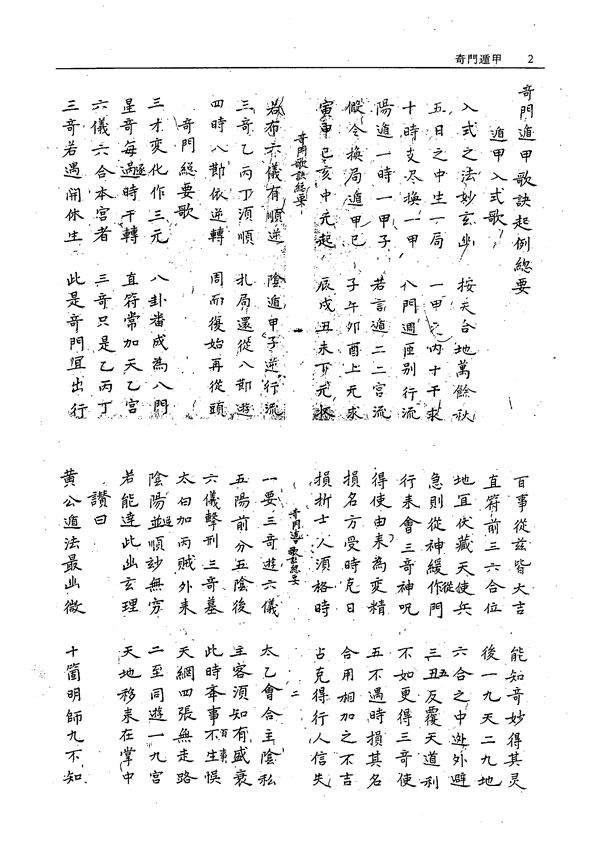 奇門遁甲 2
奇門遁甲歌訣起例總要
遁甲入式歌
入式之法妙玄幽 按天合地萬餘秋
五日之中生一局 一甲之內十干求
十時支尽換一甲 八門週匝别行流
陽遁一時一甲子 若言遁二二宮流
假令換局遁甲已 子午卯酉上元求
寅申巳亥中元起 辰戌丑未下元
奇門歌訣總要
若布六儀有順逆 陰遁甲子逆行流
三奇乙丙丁須順 扎局還從八節遊
四時八節依逆轉 周而復始再從頭
奇門總要歌
三才變化作三元 八卦畨成為八門
星奇每過逐時干轉 直符常加天乙宮
六儀六合本宮者 三奇只是乙丙丁
三奇若遇開休生 此是奇門宜出行
百事從兹皆大吉 能知奇妙得其灵
直符前三六合位 後一九天二九地
地宜伏藏天使兵 六合之中逃外避
急則從神緩作從門 三丑五反覆天道利
行來會三奇神呪 不如更得三奇使
得使由來為变精 五不遇時損其名
損名方受時克日 合用相加之不吉
損折士人須格時 占克得行人信失
奇門遁歌總要 二
一要三奇遊六儀 太乙會合主陰私
五陽前分五陰後 主客須知有盛衰
六儀擊刑三奇墓 此時奉事不百事生悮
太白加丙賊外来 天網四張無走路
陰陽並順妙無穷 二至同遊一九宮
若能達此幽玄理 天地移来在掌中
讚曰
黄公遁法最幽微 十箇明師九不知